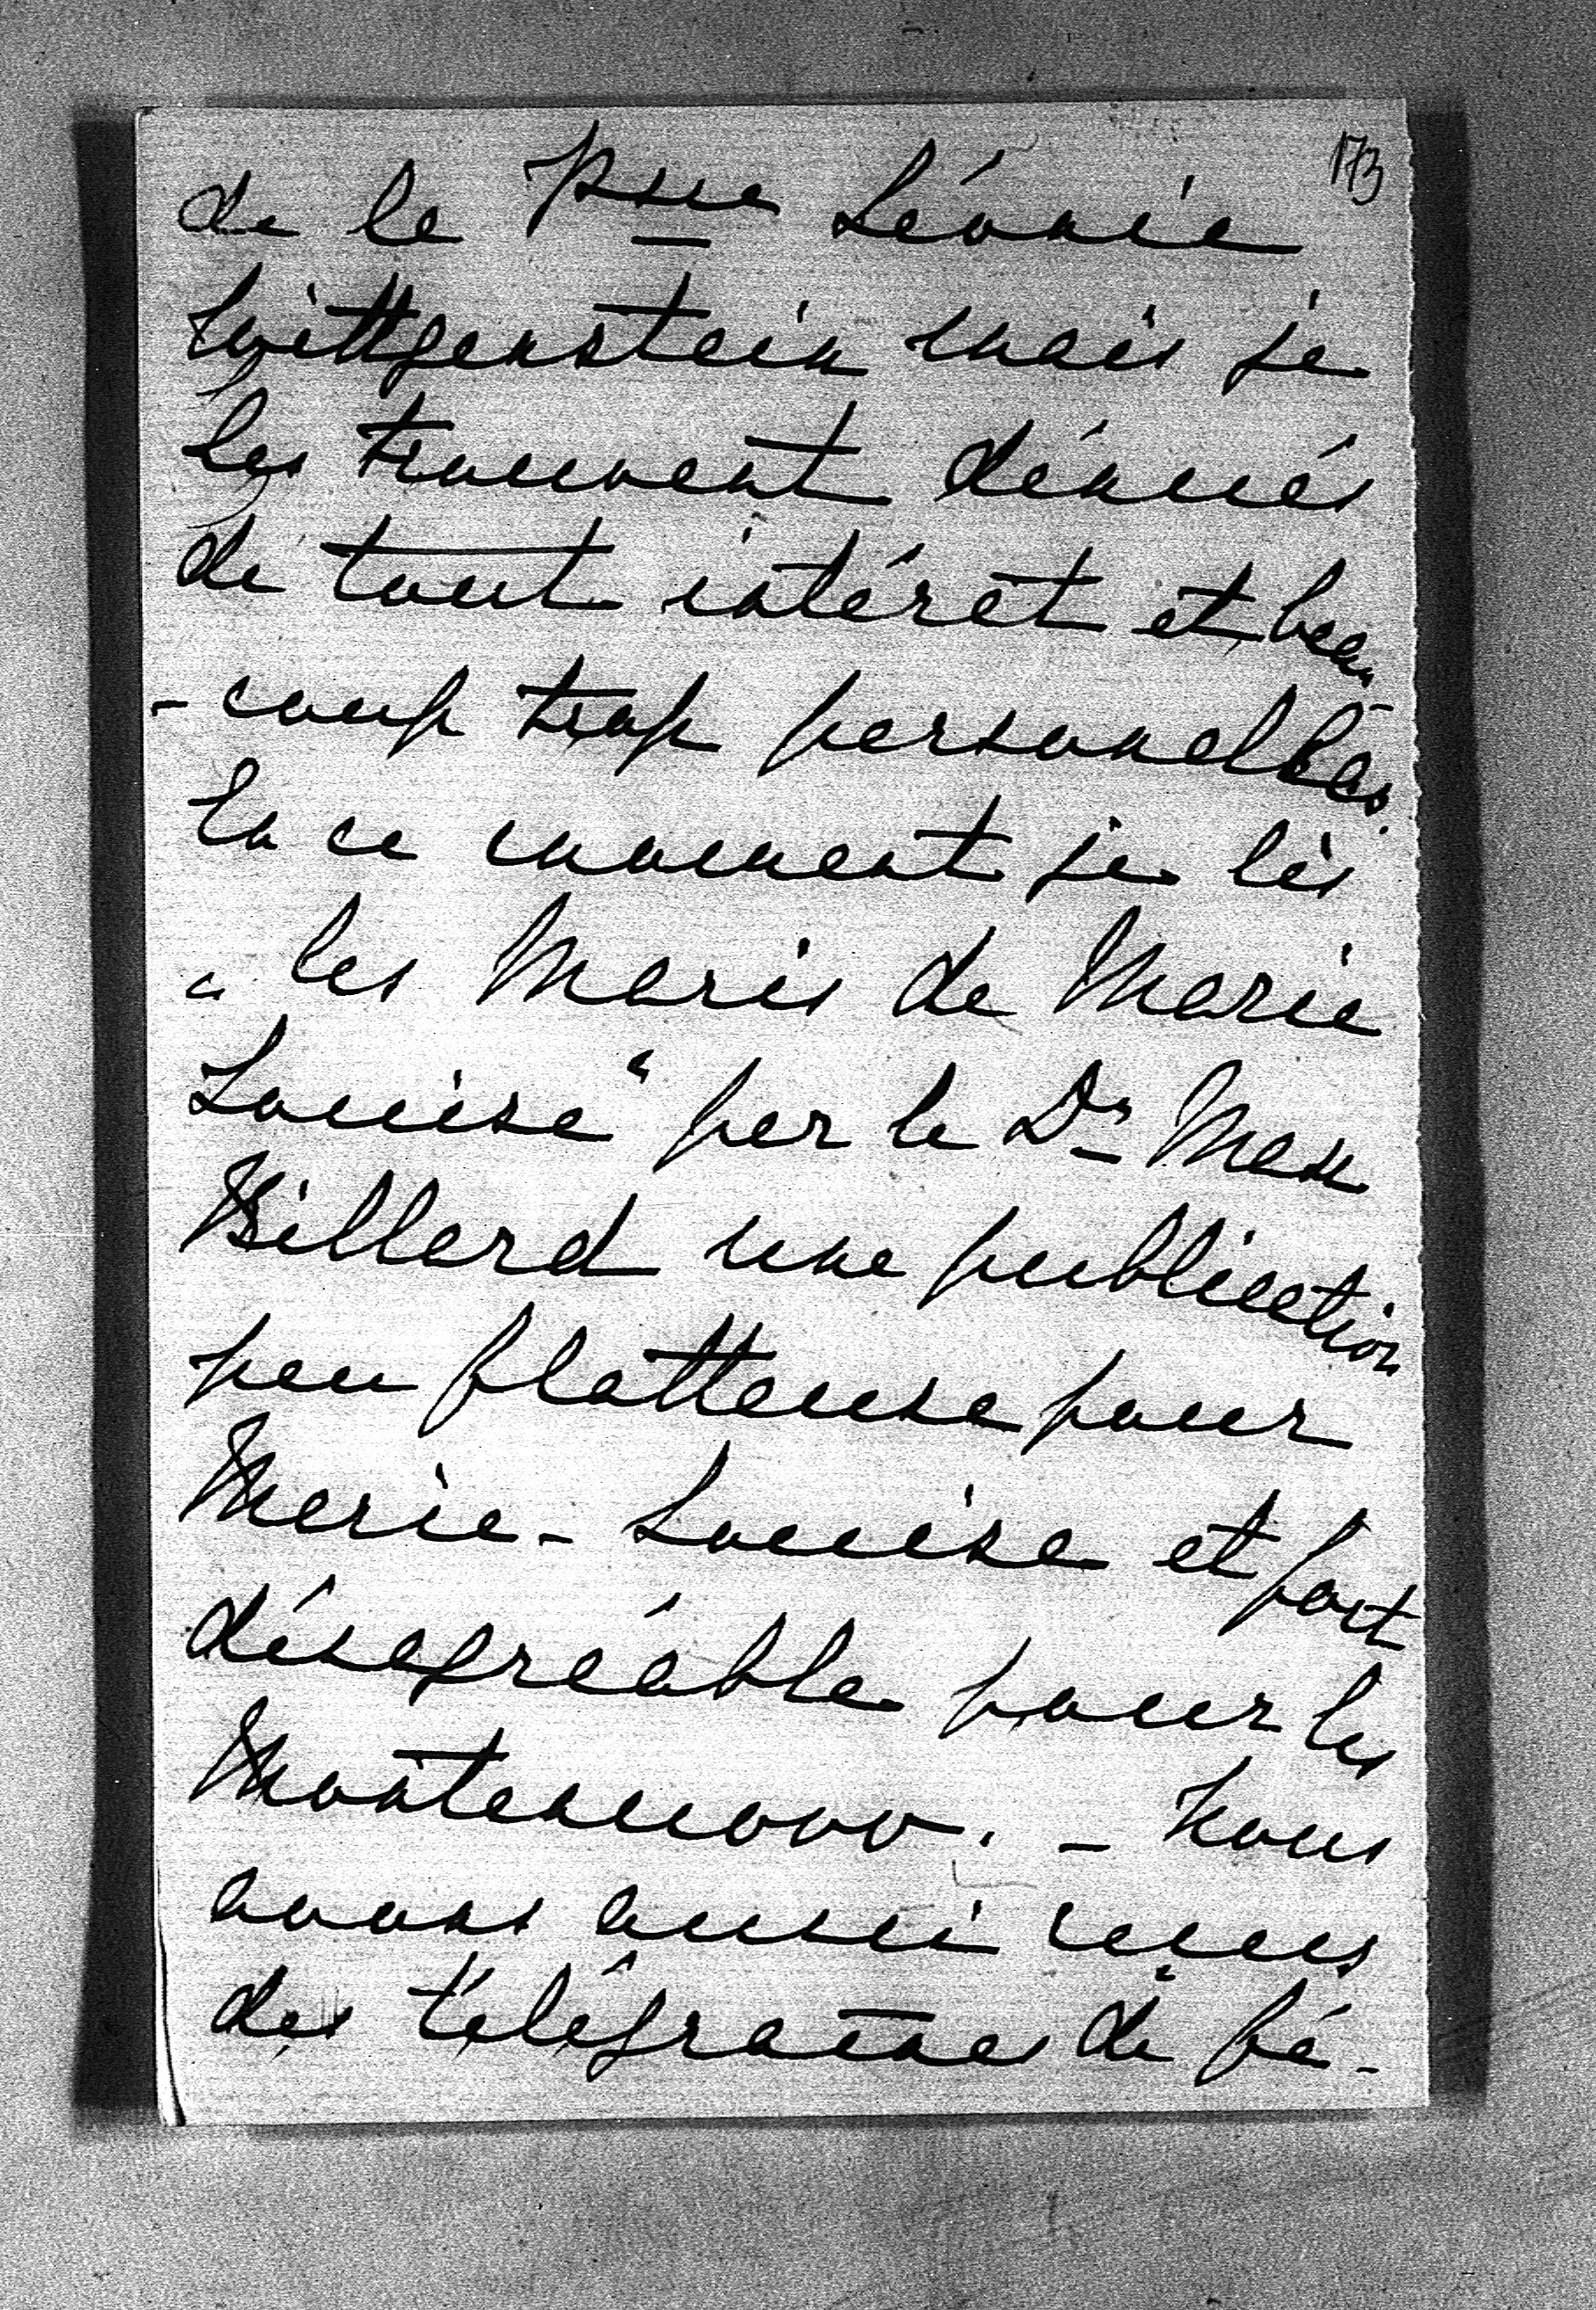 173
de la Psse Léonie
Wittgenstein mais je
les trouvent dénués
de tout intérêt et beau
- coup trop personelles.
En ce moment je lis
" les Maris de Marie
Louise " par le Dr Max
Billard une publication
peu flatteuse pour
Marie - Louise et fort
désagréable pour les
Montenuovo. - Nous
avons aussi reçus
des télégrames de fé-